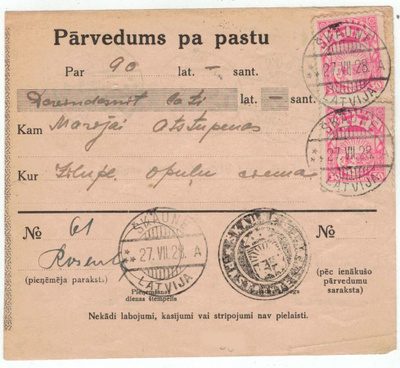 Pārvedums pa pastu
Par 90 lat. — sant.
Deviņdesmit lati lat. — sant.
Kam Marijai
Kur Zilupe,
ŠĶAUNE
27.VII.28 A
LATVIJA
ŠĶAUNE
27.VII.28
LATVIJA
No 61
No
(pieņēmēja parakst.)
ŠĶAUNE
27.VII.28 A
LATVIJA
Pieņemšanas
dienas štempelis
(pēc ienākušo
pārvedumu
saraksta)
Nekādi labojumi, kasījumi vai strīpojumi nav pielaisti.